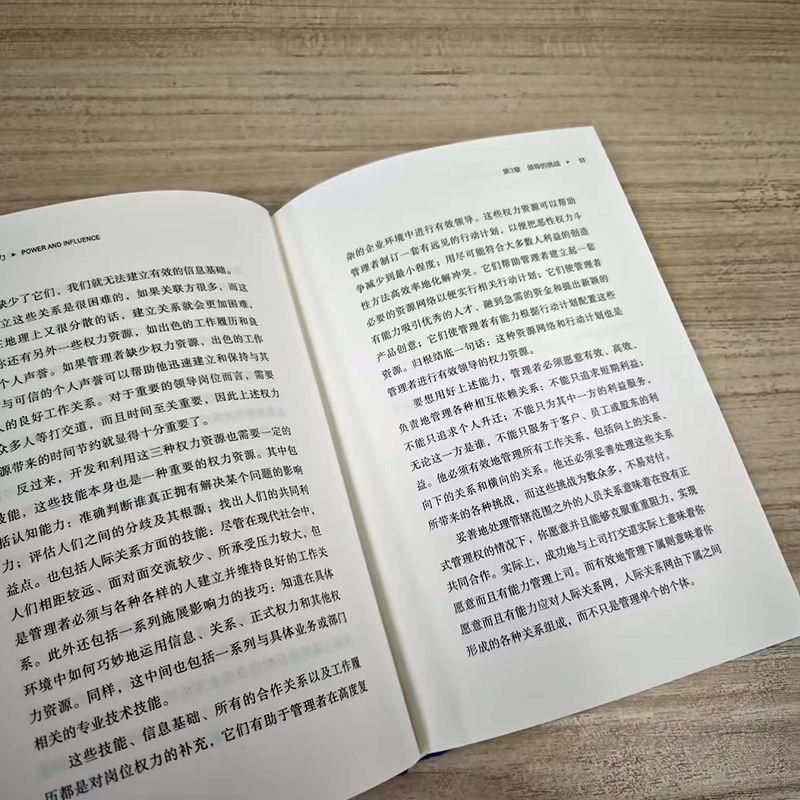 力 ▸ POWER AND INFLUENCE
缺少了它们，我们就无法建立有效的信息基础。
立这些关系是很困难的，如果关联方很多，而这
在地理上又很分散的话，建立关系就会更加困难、
你还有另外一些权力资源，如出色的工作履历和良
个人声誉。如果管理者缺少权力资源，出色的工作
与可信的个人声誉可以帮助他迅速建立和保持与其
人的良好工作关系。对于重要的领导岗位而言，需要
众多人等打交道，而且时间至关重要，因此上述权力
源带来的时间节约就显得十分重要了。
反过来，开发和利用这三种权力资源也需要一定的
技能，这些技能本身也是一种重要的权力资源。其中包
括认知能力：准确判断谁真正拥有解决某个问题的影响
力；评估人们之间的分歧及其根源；找出人们的共同利
益点。也包括人际关系方面的技能：尽管在现代社会中，
人们相距较远、面对面交流较少、所承受压力较大，但
是管理者必须与各种各样的人建立并维持良好的工作关
系。此外还包括一系列施展影响力的技巧：知道在具体
环境中如何巧妙地运用信息、关系、正式权力和其他权
力资源。同样，这中间也包括一系列与具体业务或部门
相关的专业技术技能。
这些技能、信息基础、所有的合作关系以及工作履
历都是对岗位权力的补充，它们有助于管理者在高度复
第3章 领导的挑战 ▸ 53
杂的企业环境中进行有效领导。这些权力资源可以帮助
管理者制订一套有远见的行动计划，以便把恶性权力斗
争减少到最小程度；用尽可能符合大多数人利益的创造
性方法高效率地化解冲突。它们帮助管理者建立起一套
必要的资源网络以便实行相关行动计划；它们使管理者
有能力吸引优秀的人才、融到急需的资金和提出新颖的
产品创意；它们使管理者有能力根据行动计划配置这些
资源。归根结底一句话；这种资源网络和行动计划也是
管理者进行有效领导的权力资源。
要想用好上述能力，管理者必须愿意有效、高效、
负责地管理各种相互依赖关系；不能只追求短期利益；
不能只追求个人升迁；不能只为其中一方的利益服务，
无论这一方是谁，不能只服务于客户、员工或股东的利
益。他必须有效地管理所有工作关系，包括向上的关系、
向下的关系和横向的关系。他还必须妥善处理这些关系
所带来的各种挑战，而这些挑战为数众多，不易对付。
妥善地处理管辖范围之外的人员关系意味着在没有正
式管理权的情况下，你愿意并且能够克服重重阻力，实现
共同合作。实际上，成功地与上司打交道实际上意味着你
愿意而且有能力管理上司。而有效地管理下属则意味着你
愿意而且有能力应对人际关系网，人际关系网由下属之间
形成的各种关系组成，而不只是管理单个的个体。